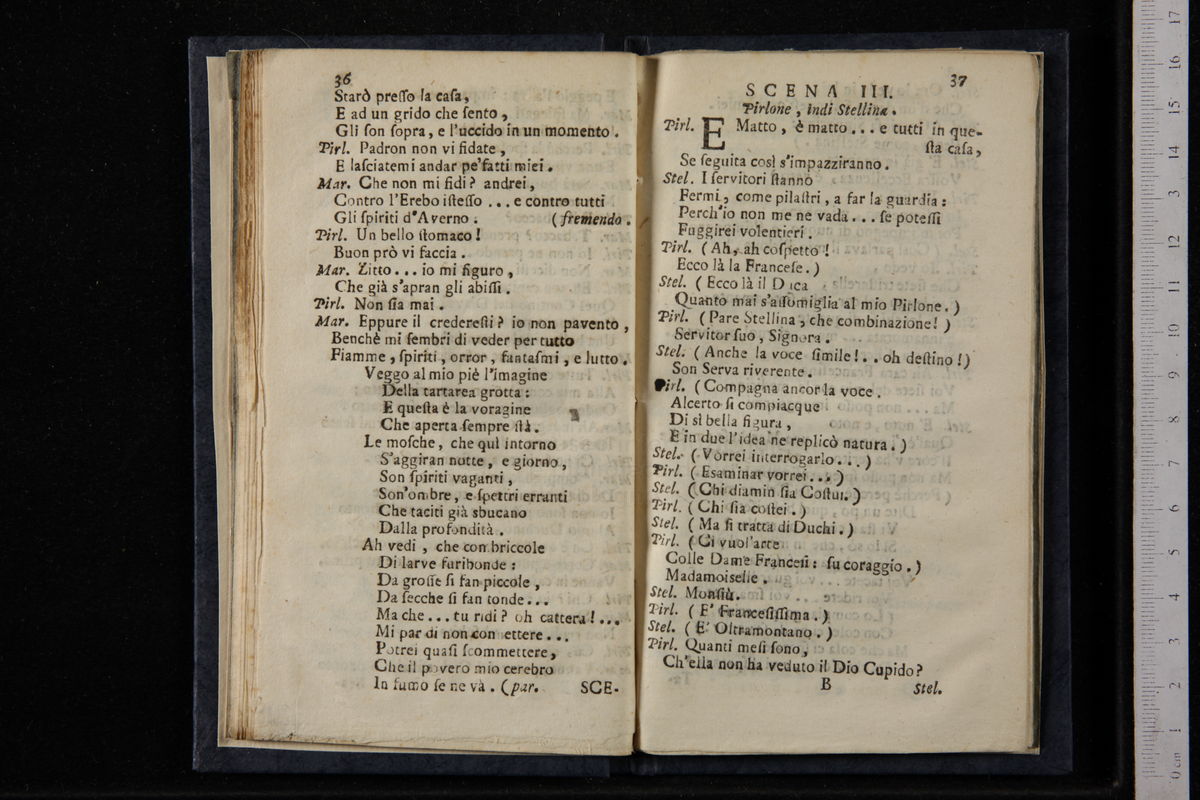 36
Starò preſſo la caſa,
E ad un grido che ſento,
Gli ſon ſopra, e l'uccido in un momento.
Pirl. Padron non vi fidate,
E laſciatemi andar pe'fatti miei.
Mar. Che non mi fidi? andrei,
Contro l'Erebo iſteſſo ... e contro tutti
Gli ſpiriti d'Averno. (fremendo.
Pirl. Un bello ſtomaco!
Buon prò vi faccia.
Mar. Zitto... io mi figuro,
Che già s'apran gli abiſſi.
Pirl. Non ſia mai.
Mar. Eppure il credereſti? io non pavento,
Benchè mi ſembri di veder per tutto
Fiamme, ſpiriti, orror, fantaſmi, e lutto.
Veggo al mio piè l'imagine
Della tartarea grotta:
E queſta è la voragine
Che aperta ſempre ſtà.
Le moſche, che quì intorno
S'aggiran notte, e giorno,
Son ſpiriti vaganti,
Son'ombre, e ſpettri erranti
Che taciti già sbucano
Dalla profondità.
Ah vedi, che combriccole
Di larve furibonde:
Da groſſe ſi fan piccole,
Da ſecche ſi fan tonde...
Ma che... tu ridi? oh cattera!...
Mi par di non con ettere...
Potrei quaſi ſcommettere,
Che il povero mio cerebro
In fumo ſe ne và. (par. SCE-
37
SCENA III.
Pirlone, indi Stellina.
Pirl. E Matto, è matto... e tutti in que-
ſta caſa,
Se ſeguita così s'impazziranno.
Stel. I ſervitori ſtanno
Fermi, come pilaſtri, a far la guardia:
Perch'io non me ne vada... ſe poteſſi
Fuggirei volentieri.
Pirl. (Ah, ah coſpetto!
Ecco là la Franceſe.)
Stel. (Ecco là il D ca
Quanto mai s'aſſomiglia al mio Pirlone.)
Pirl. (Pare Stellina, che combinazione!)
Servitor ſuo, Signora.
Stel. (Anche la voce ſimile!.. oh deſtino!)
Son Serva riverente.
Pirl. (Compagna ancor la voce.
Alcerto ſi compiacque
Di sì bella figura,
E in due l'idea ne replicò natura.)
Stel. (Vorrei interrogarlo...)
Pirl. (Esaminar vorrei...)
Stel. (Chi diamin ſia Coſtui.)
Pirl. (Chi ſia coſtei.)
Stel. (Ma ſi tratta di Duchi.)
Pirl. (Ci vuol'arte
Colle Dame Franceſi: ſu coraggio.)
Madamoiselle.
Stel. Monſiù.
Pirl. (E' Franceſiſſima.)
Stel. (E' Oltramontano.)
Pirl. Quanti meſi ſono,
Ch'ella non ha veduto il Dio Cupido?
B Stel.